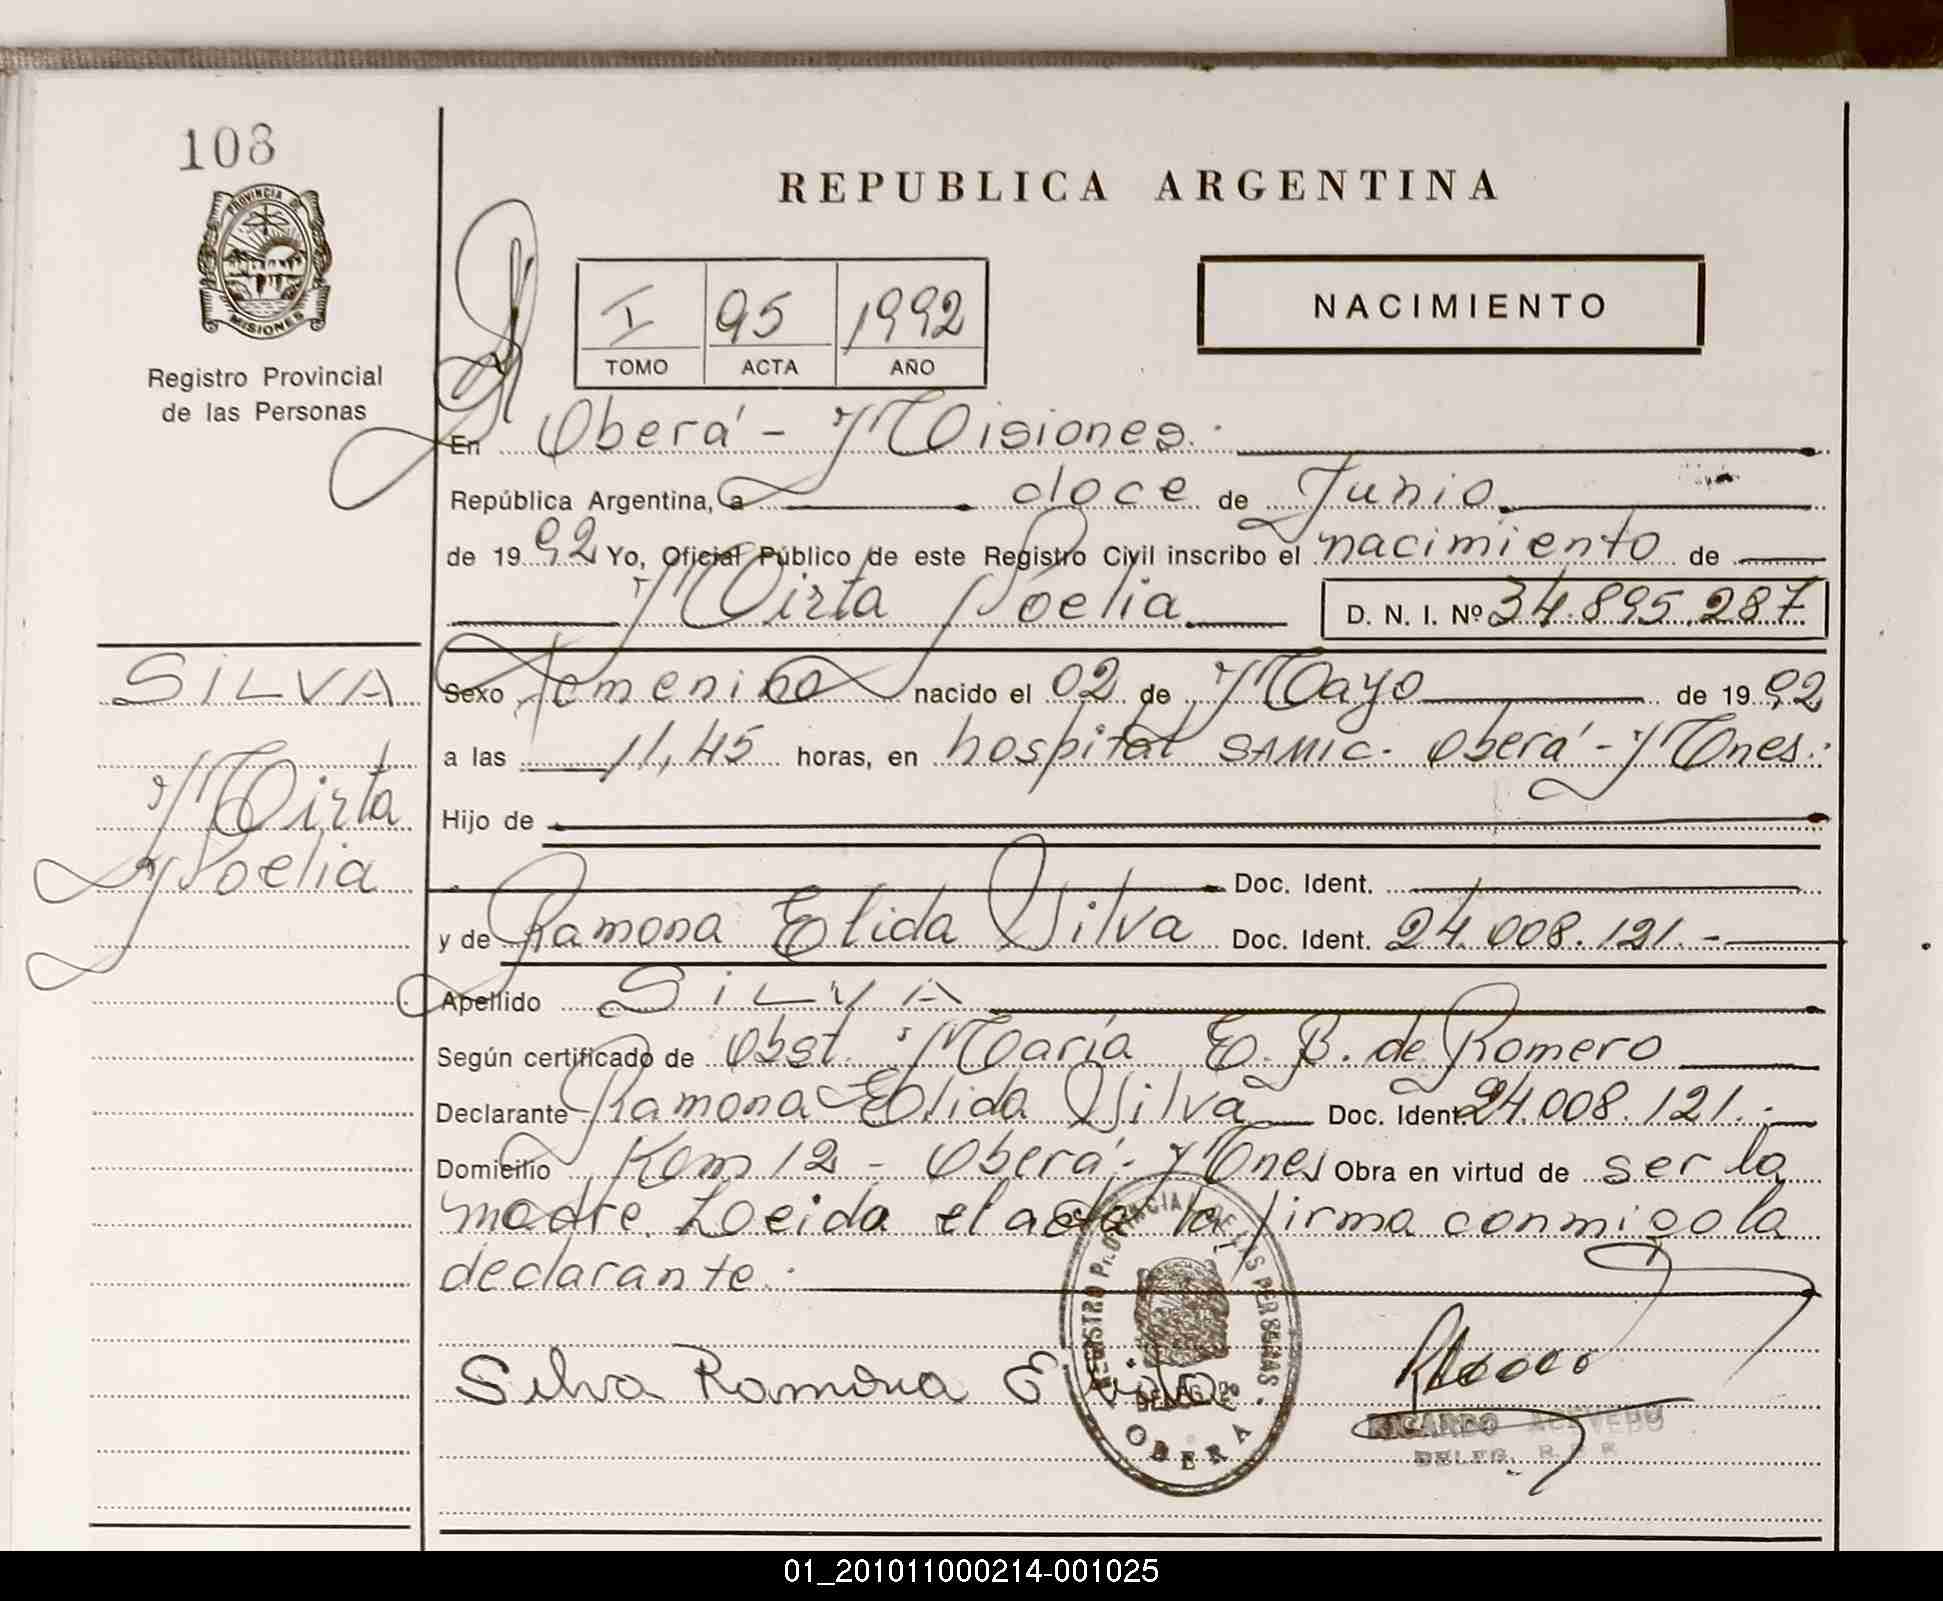 108
PROVINCIA DE
MISIONES
Registro Provincial
de las Personas
REPUBLICA ARGENTINA
I 95 1992
TOMO ACTA AÑO
NACIMIENTO
En Oberá - Misiones.
República Argentina, a doce de Junio
de 1992 Yo, Oficial Público de este Registro Civil inscribo el nacimiento de
Mirta Noelia D. N. I. Nº 34.895.287
SILVA
Mirta
Noelia
Sexo femenino nacido el 02 de Mayo de 1992
a las 11,45 horas, en hospital SAMIC - Oberá - Mnes.
Hijo de
Doc. Ident.
y de Ramona Elida Silva Doc. Ident. 24.008.121.-
Apellido SILVA
Según certificado de Obst. María E. B. de Romero
Declarante Ramona Elida Silva Doc. Ident. 24.008.121.-
Domicilio Km 12 - Oberá - Mnes Obra en virtud de ser la
madre. Leida el acta la firma conmigo la
declarante.
Silva Ramona Elida
REGISTRO PROVINCIAL DE LAS PERSONAS
OBERA
RICARDO ACEVEDO
DELEG. R. P. P.
01_201011000214-001025